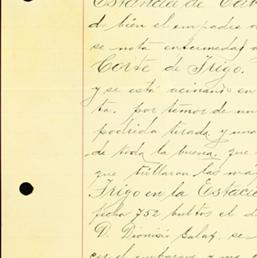 Estancia de Cab
do bien el empadre
se nota enfermedad
Corte de Trigo.
y se está acinando en
ta. por temor de un
podrida tirada y una
de toda la buena. que
que trillaron las má
Trigo en la Estació
fecha 752 bultos el d
D. Dionisio Galaz. se